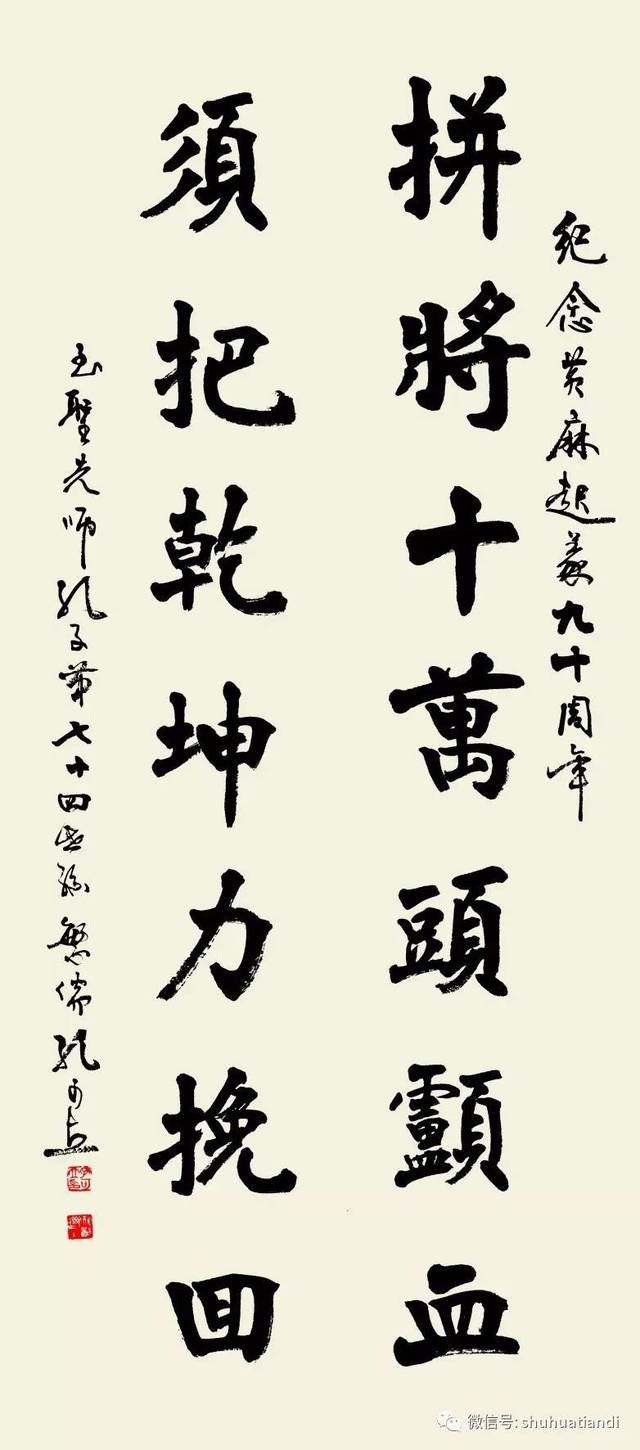 紀念黄麻起義九十周年
拼將十萬頭顱血
須把乾坤力挽回
至聖先師孔子第七十四世孫儒孔可
微信号: shuhuatiandi